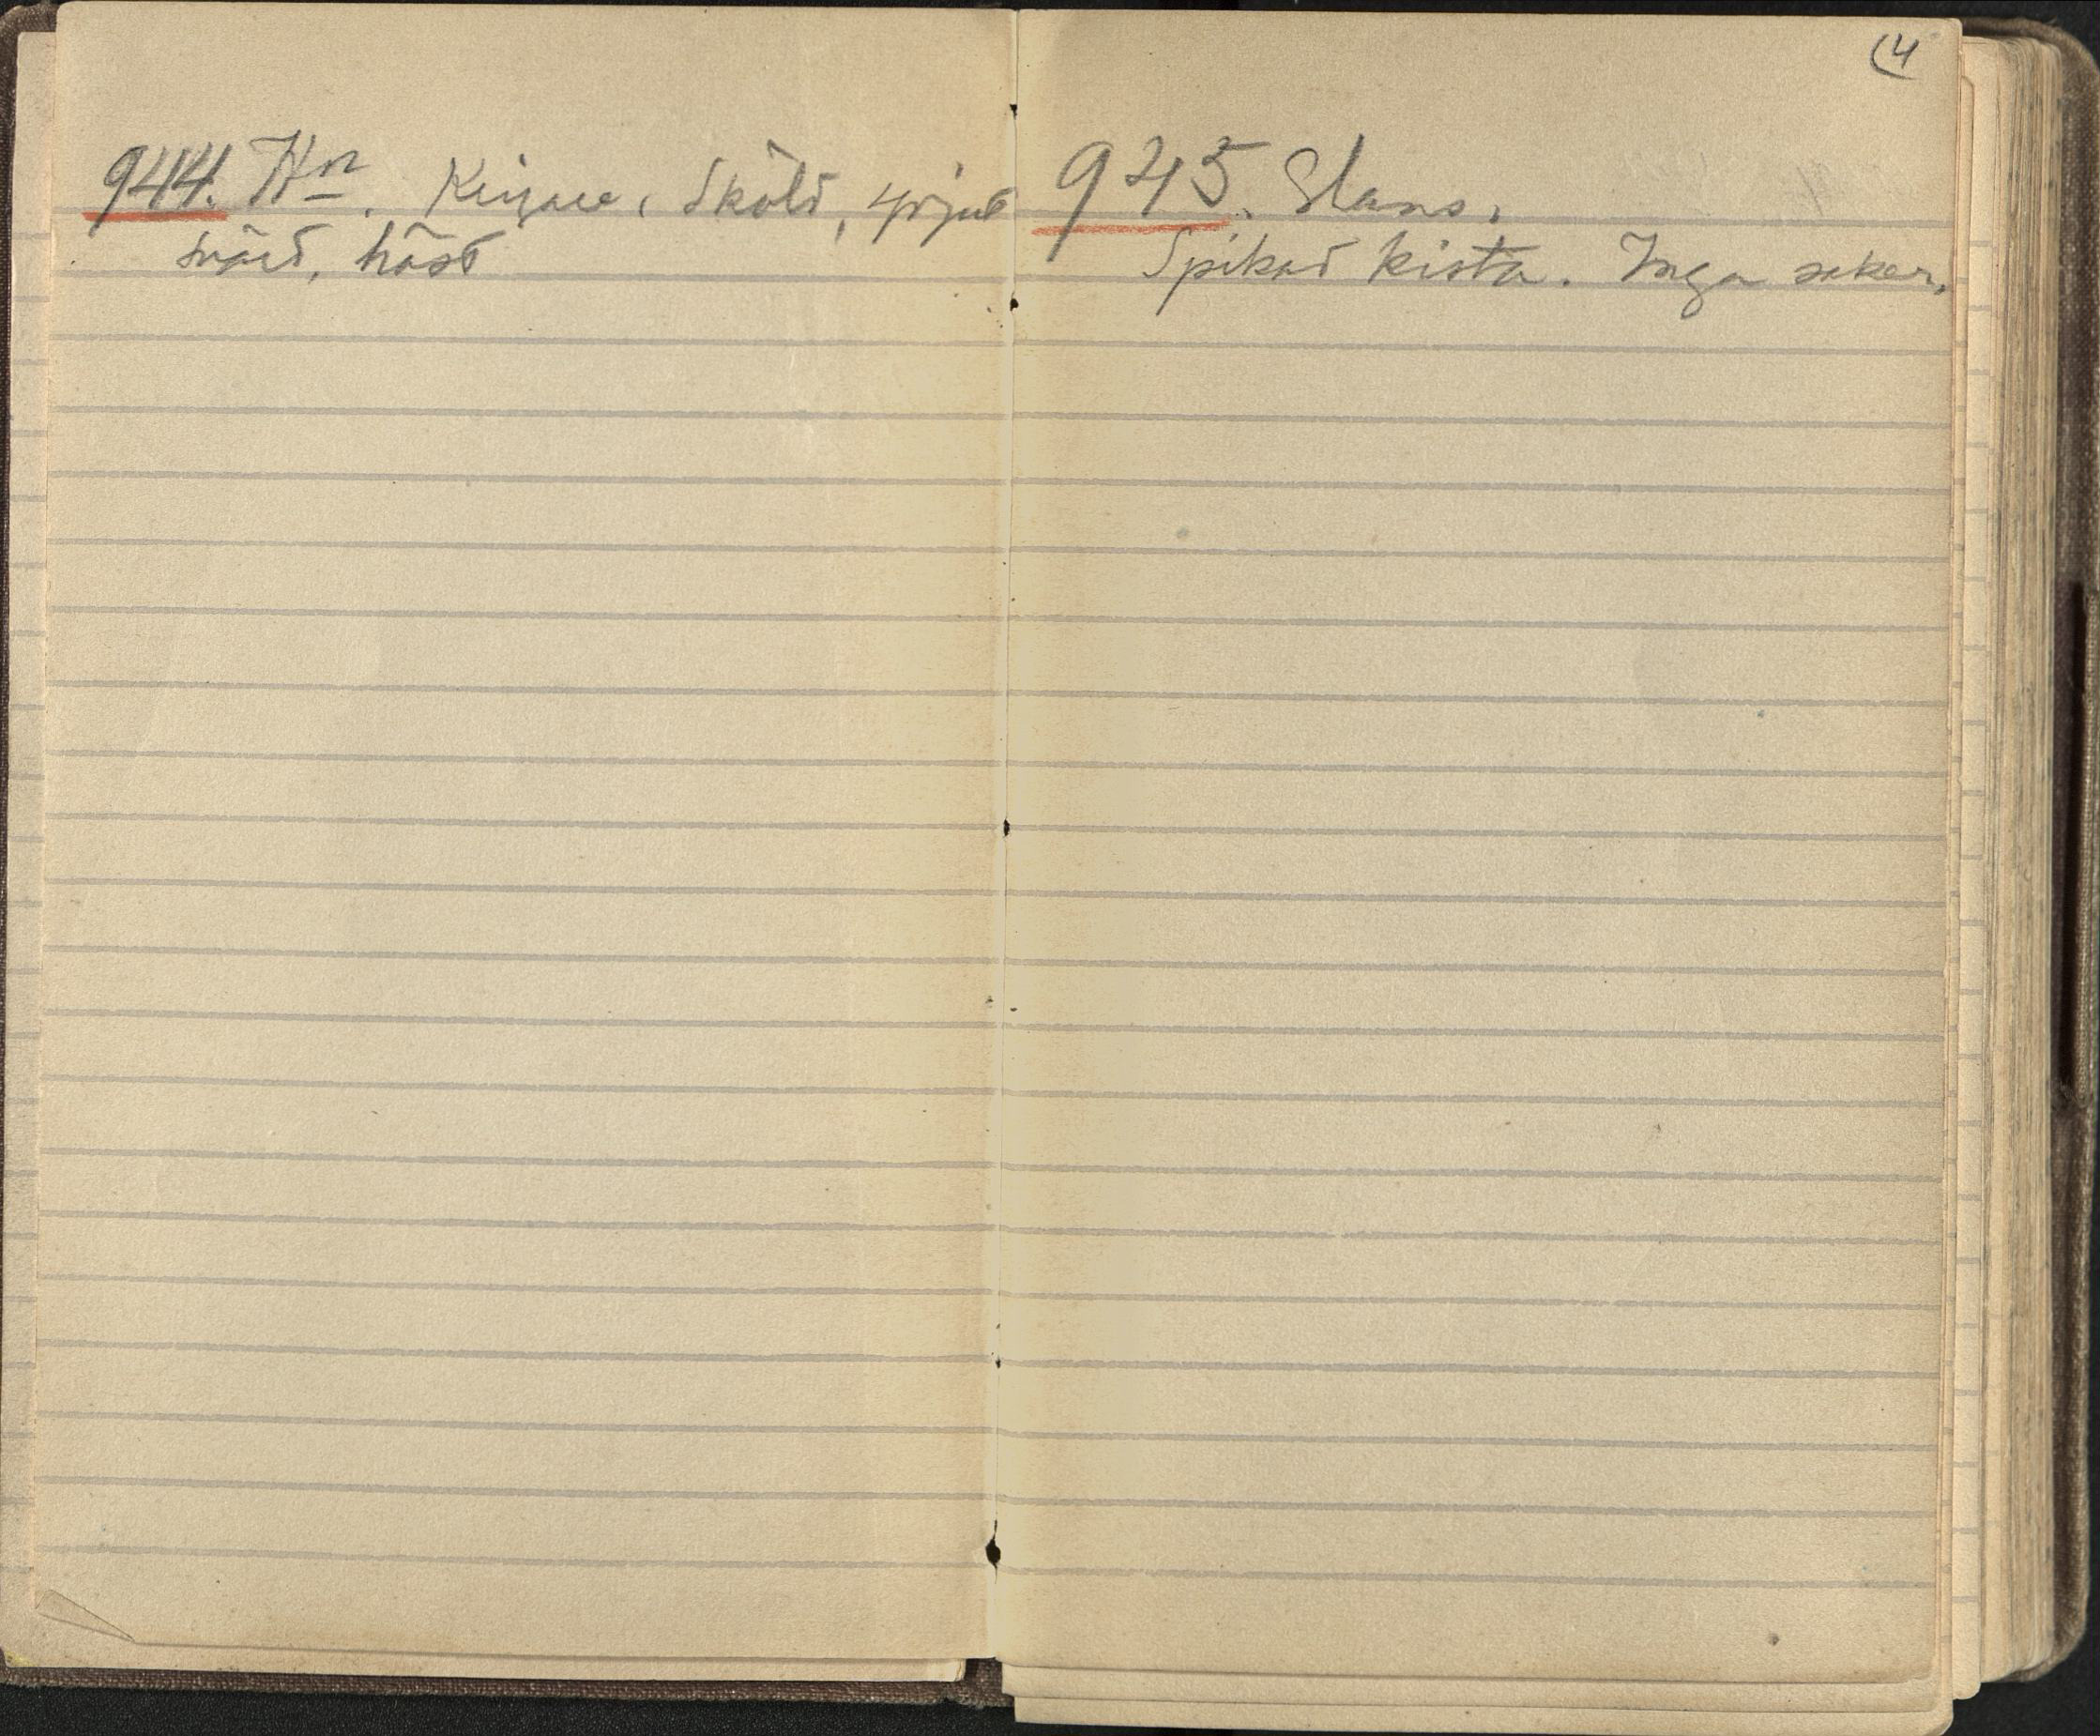 944. Hn. Sköld, spjut
svärd, häst
(4
945. Slaus.
Spikad kista. Inga saker.